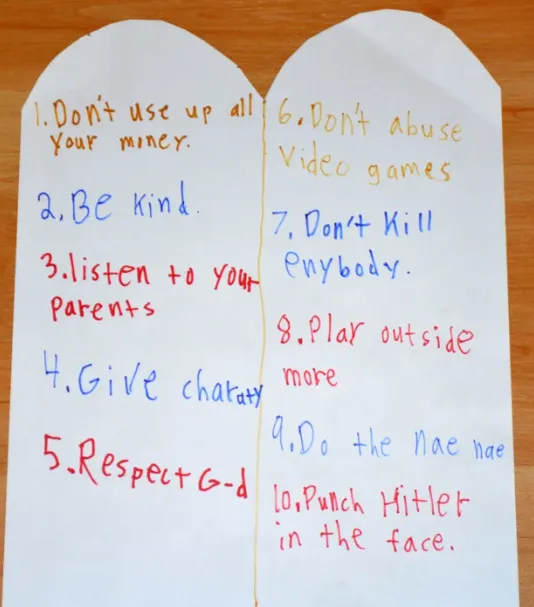 1. Don't use up all
your money.
2. Be kind.
3. listen to your
parents
4. Give charaty
5. Respect G-d
6. Don't abuse
video games
7. Don't kill
enybody.
8. Play outside
more
9. Do the nae nae
10. Punch Hitler
in the face.